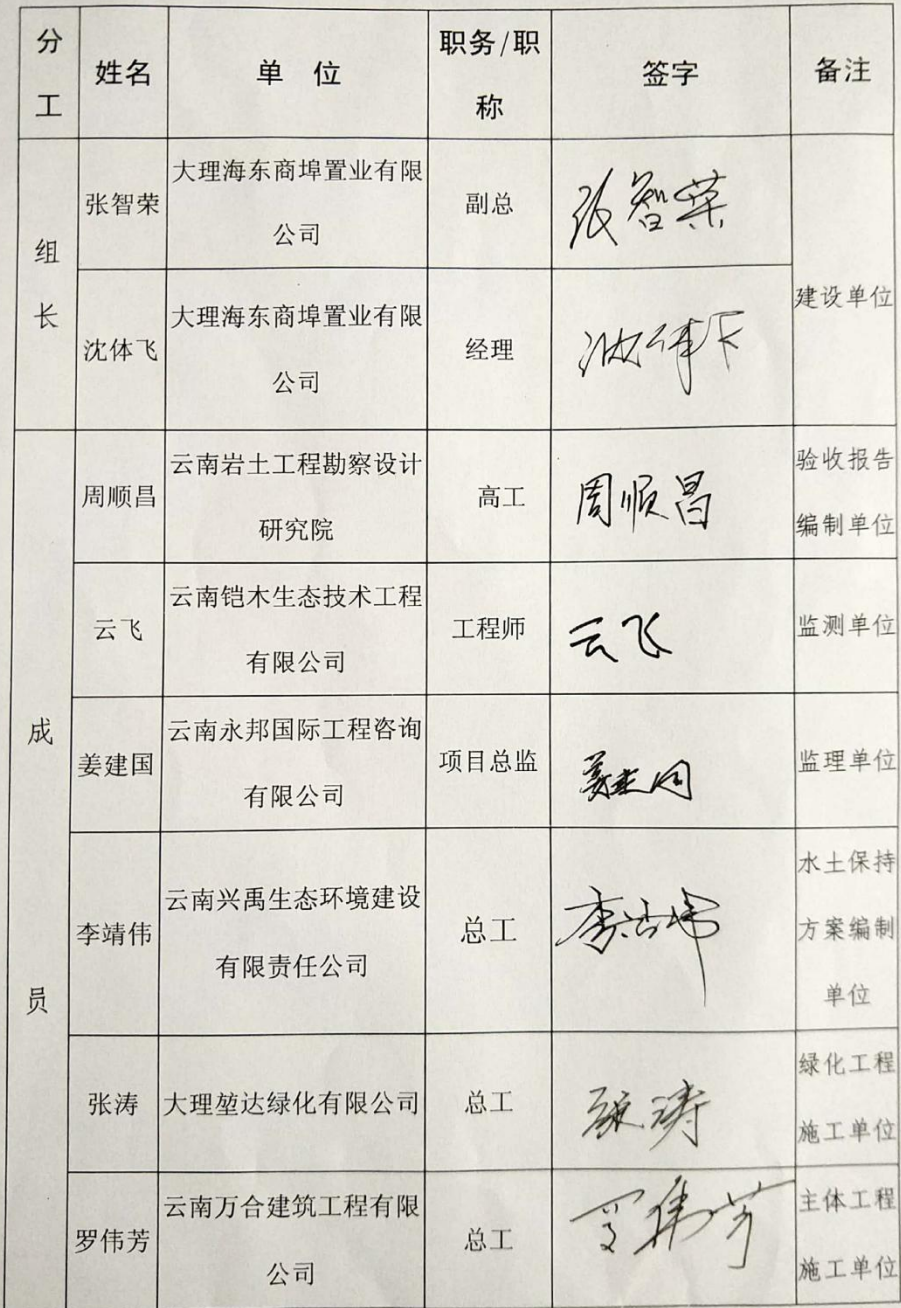 分工 姓名 单 位 职务/职称 签字 备注
组长 张智荣 大理海东商埠置业有限公司 副总 张智荣 建设单位
沈体飞 大理海东商埠置业有限公司 经理 沈体飞
成员 周顺昌 云南岩土工程勘察设计研究院 高工 周顺昌 验收报告编制单位
云飞 云南铠木生态技术工程有限公司 工程师 云飞 监测单位
姜建国 云南永邦国际工程咨询有限公司 项目总监 姜建国 监理单位
李靖伟 云南兴禹生态环境建设有限责任公司 总工 李靖伟 水土保持方案编制单位
张涛 大理堃达绿化有限公司 总工 张涛 绿化工程施工单位
罗伟芳 云南万合建筑工程有限公司 总工 罗伟芳 主体工程施工单位